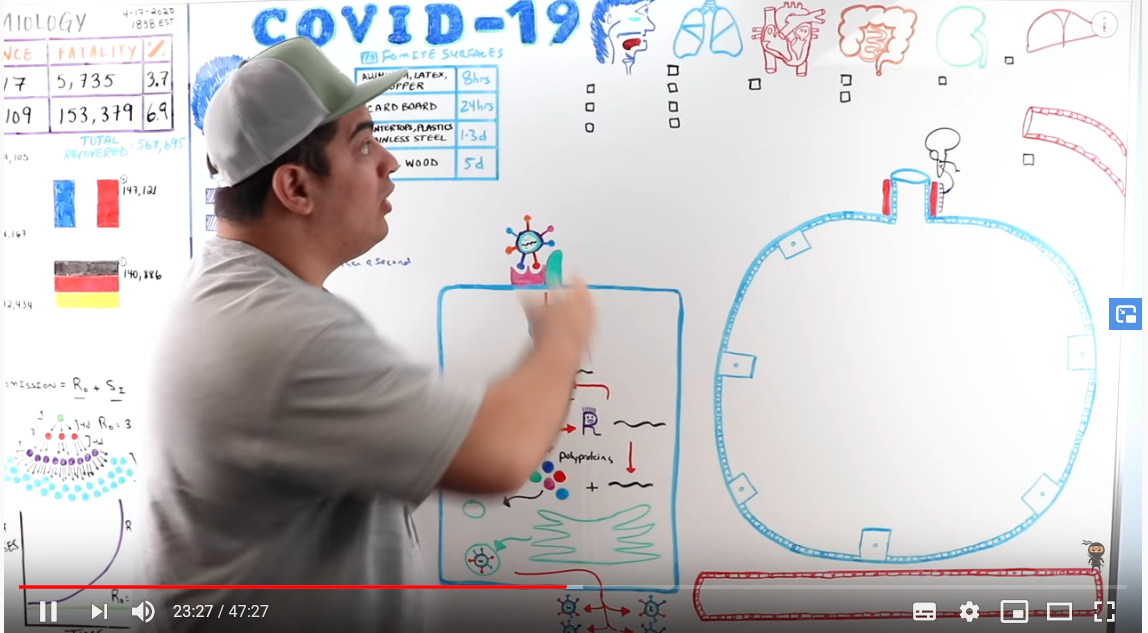 MIOLOGY
4-17-2020
1838 EST
NCE FATALITY %
17 5,735 3.7
109 153,379 6.9
TOTAL
RECOVERED = 567,695
9,105
147,121
140,886
12,434
MISSION = R0 + SI
1
3
R0 = 3
R
R0 =
COVID-19
FOMITE SURFACES
8hrs
CARD BOARD 24hrs
NTERTOPS, PLASTICS
INLESS STEEL 1-3d
WOOD 5d
a second
R
Polyproteins
+
23:27 / 47:27